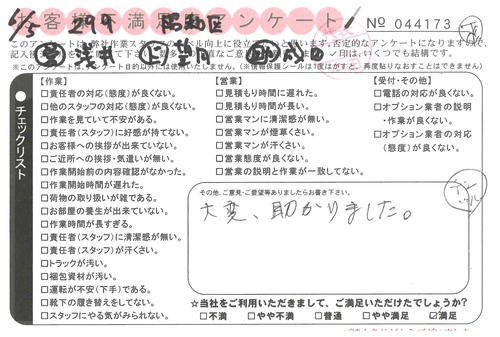 お客様不満足アンケート!
No 044173
昭和区
このアンケートは、弊社作業スタッフのレベル向上に役立
※このアンケートは、アンケート目的以外には使用いたしません。(※情報保護シールは1度はがすと、再度貼りなおすことはできません)
チェックリスト
【作業】
□責任者の対応(態度)が良くない。
□他のスタッフの対応(態度)が良くない。
□作業を見ていて不安がある。
□責任者(スタッフ)に好感が持てない。
□お客様への挨拶が出来ていない。
□ご近所への挨拶・気遣いが無い。
□作業開始前の内容確認がなかった。
□作業開始時間が遅れた。
□荷物の取り扱いが雑である。
□お部屋の養生が出来ていない。
□作業時間が長すぎる。
□責任者(スタッフ)に清潔感が無い。
□責任者(スタッフ)が汗くさい。
□トラックが汚い。
□梱包資材が汚い。
□運転が不安(下手)である。
□靴下の履き替えをしてない。
□スタッフにやる気がみられない。
【営業】
□見積もり時間に遅れた。
□見積もり時間が長い。
□営業マンに清潔感が無い。
□営業マンが煙草くさい。
□営業マンが汗くさい。
□営業態度が良くない。
□営業の説明と作業が一致してない。
【受付・その他】
□電話の対応が良くない。
□オプション業者の説明
・作業が良くない。
□オプション業者の対応
(態度)が良くない。
その他、ご意見・ご要望等ありましたらお書き下さい。
大変、助かりました。
☆当社をご利用いただきまして、ご満足いただけたでしょうか?
□不満 □やや不満 □普通 □やや満足 ☑満足